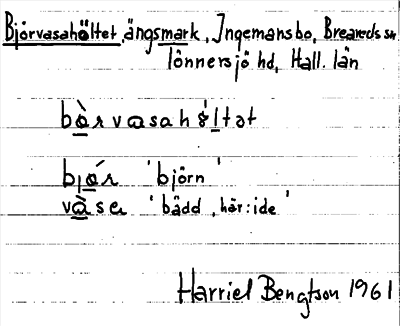 Björvasahöltet, ängsmark, Ingemansbo, Breareds sn
Tönnersjö hd, Hall. län
bàrvasahəltət
bjár 'björn'
vàse 'bädd, här: ide'
Harriel Bengtson 1961